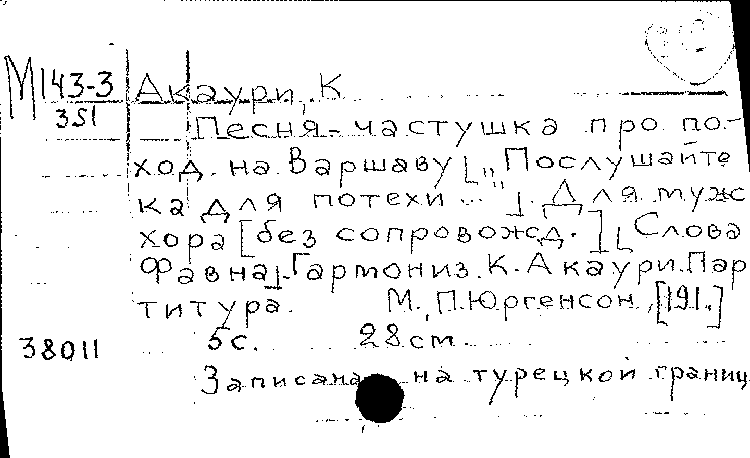 М 143-3 Акаури, К
351 Песня-частушка про по-
ход на Варшаву [„Послушайте
ка для потехи..."]. Для муж
хора [без сопровожд.] [Слова
Фавна]. Гармониз. К. Акаури. Пар
титура. М., П. Юргенсон, [191.]
38011 5с. 28см.
Записана на турецкой границ